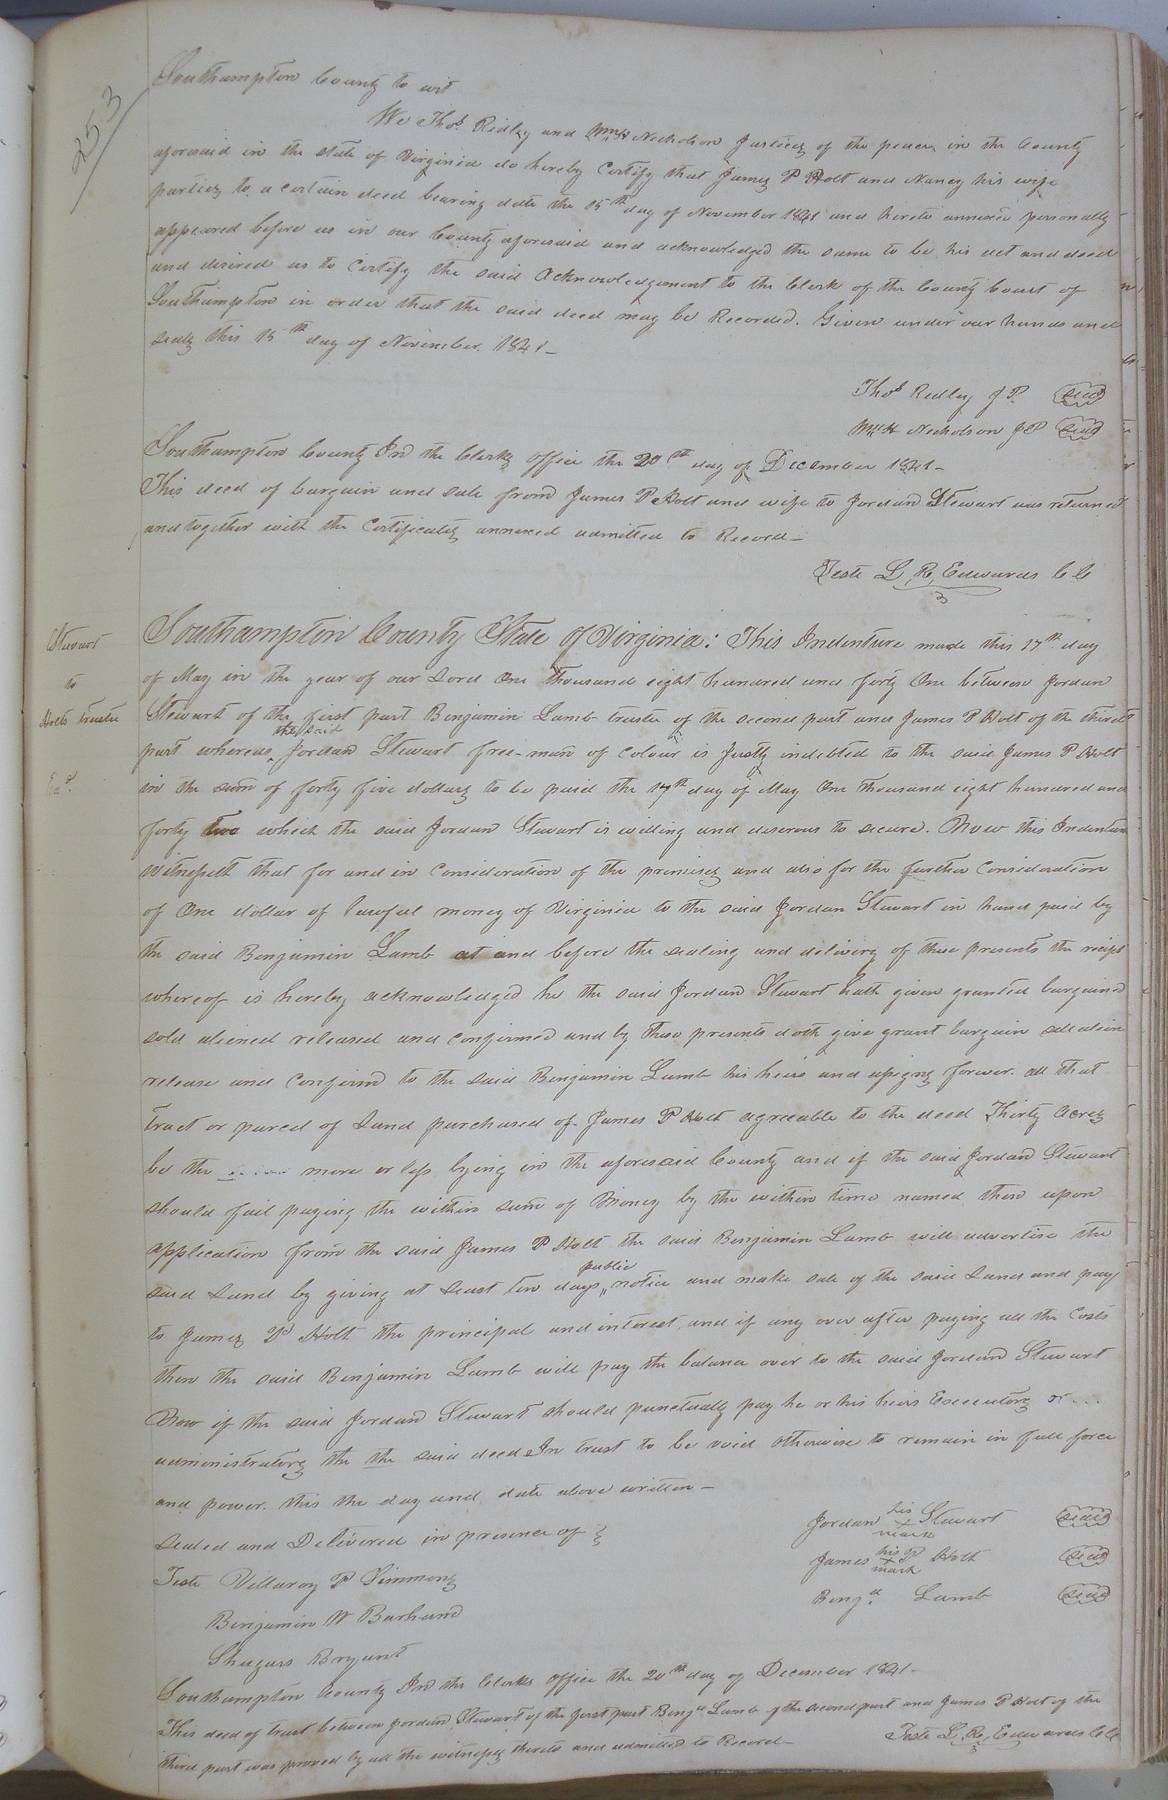 253
Southampton County to wit
We Thos. Ridley and Wm H Nicholson Justices of the peace in the County
aforesaid in the state of Virginia do hereby Certify that James P Holt and Nancy his wife
parties to a certain deed bearing date the 15th day of November 1841 and hereto annexed personally
appeared before us in our County aforesaid and acknowledged the same to be his act and deed
and desired us to Certify the said Acknowledgement to the Clerk of the County Court of
Southampton in order that the said deed may be Recorded. Given under our hands and
seals this 15th day of November. 1841—
Thos Ridley J P. Seal
Wm H Nicholson J P Seal
Southampton County In the Clerks office the 20th day of December 1841—
This deed of bargain and sale from James P Holt and wife to Jordan Stewart was returned
and together with the Certificates annexed admitted to Record—
Teste L, R, Edwards C C
Stewart
to
Holts trustee
Southampton County State of Virginia: This Indenture made this 17th day
of May in the year of our Lord One thousand eight hundred and forty One between Jordan
Stewart of the first part Benjamin Lamb trustee of the second part and James P Holt of the third
part whereas the said Jordan Stewart free-man of colour is Justly indebted to the said James P Holt
in the sum of forty five dollars to be paid the 17th day of May One thousand eight hundred and
forty two which the said Jordan Stewart is willing and deserous to secure. Now this Indenture
witnesseth that for and in Consideration of the premises and also for the further Consideration
of One dollar of lawful money of Virginia to the said Jordan Stewart in hand paid by
the said Benjamin Lamb at and before the sealing and delivery of these presents the reciept
whereof is hereby acknowledged he the said Jordan Stewart hath given granted bargained
sold aliened released and confirmed and by these presents doth give grant bargain sell alien
release and Confirm to the said Benjamin Lamb his heirs and assigns forever. all that
tract or parcel of Land purchased of James P Holt agreeable to the deed Thirty Acres
be the ...... more or less lying in the aforesaid County and if the said Jordan Stewart
should fail paying the within sum of Money by the within time named then upon
application from the said James P Holt the said Benjamin Lamb will advertise the
said Land by giving at Least ten days public notice and make sale of the said Land and pay
to James P Holt the principal and interest. and if any over after paying all the Costs
then the said Benjamin Lamb will pay the balance over to the said Jordan Stewart
Now if the said Jordan Stewart should punctually pay he or his heirs Executors or ....
administrators the the said deed In trust to be void otherwise to remain in full force
and power. this the day and date above written—
Sealed and Delivered in presence of } Jordan his + mark Stewart Seal
Teste Villaroy P Simmons James his + mark P Holt Seal
Benjamin W Barham Benja. Lamb Seal
Shugars Bryant
Southampton County In the Clerks Office the 20th day of December 1841.
This deed of trust between Jordan Stewart of the first part Benja Lamb of the second part and James P Holt of the
third part was proved by all the witnesses thereto and admitted to Record— Teste L, R, Edwards C C